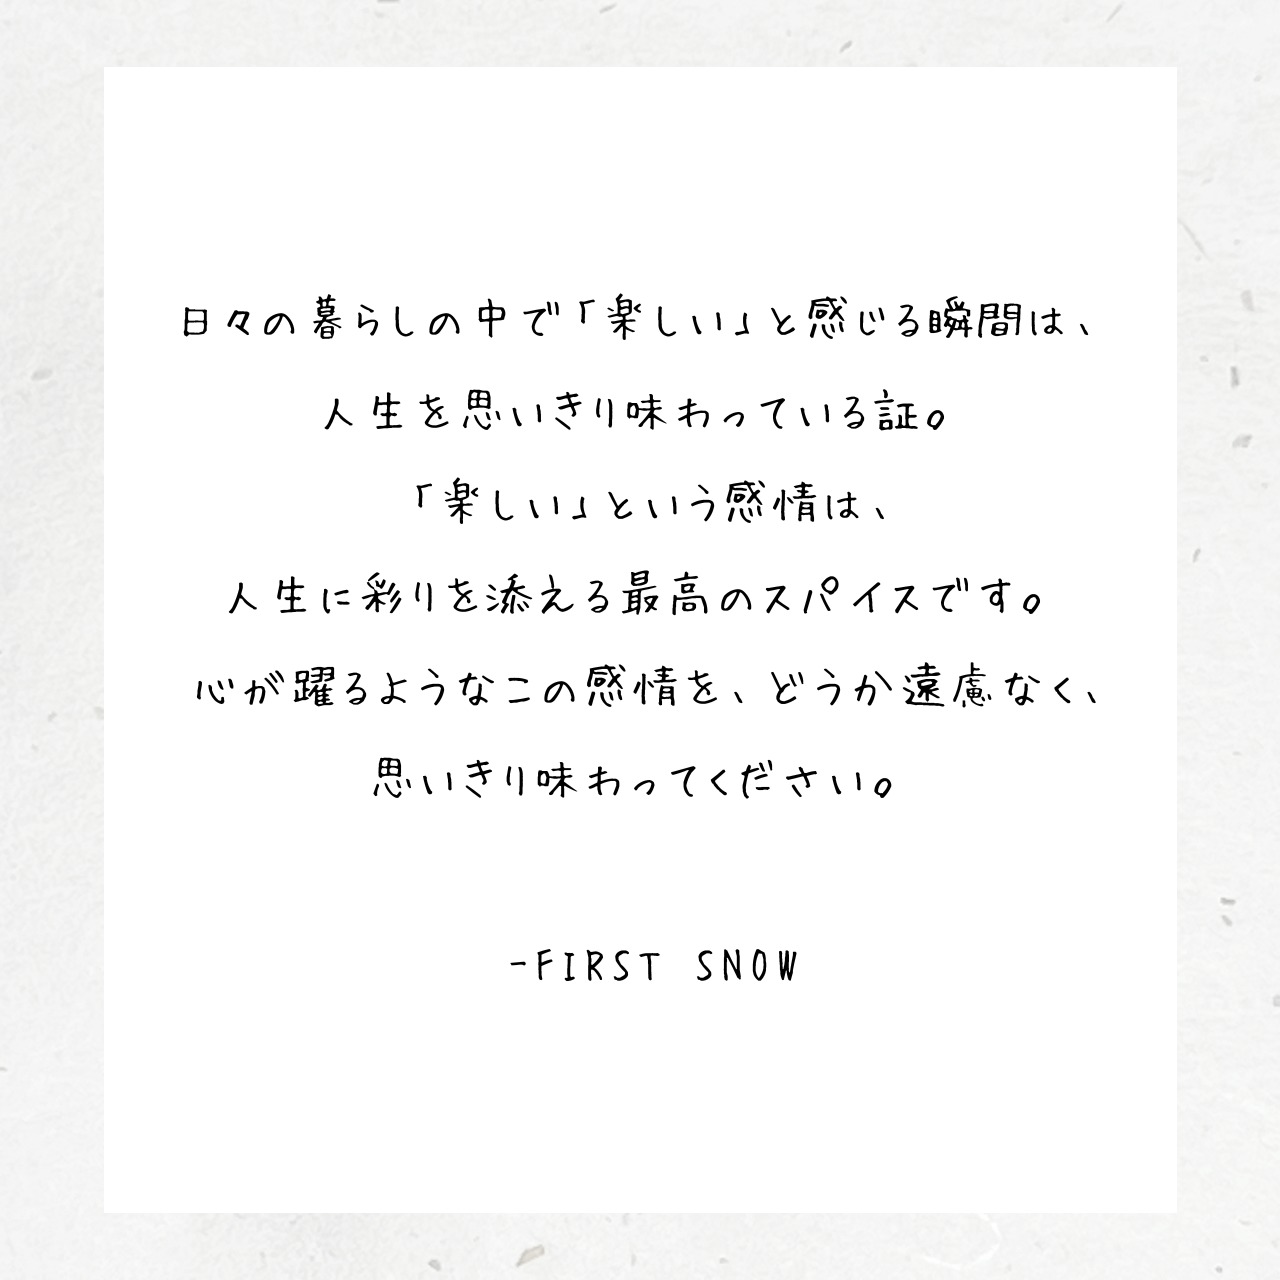 日々の暮らしの中で「楽しい」と感じる瞬間は、
人生を思いきり味わっている証。
「楽しい」という感情は、
人生に彩りを添える最高のスパイスです。
心が躍るようなこの感情を、どうか遠慮なく、
思いきり味わってください。
-FIRST SNOW